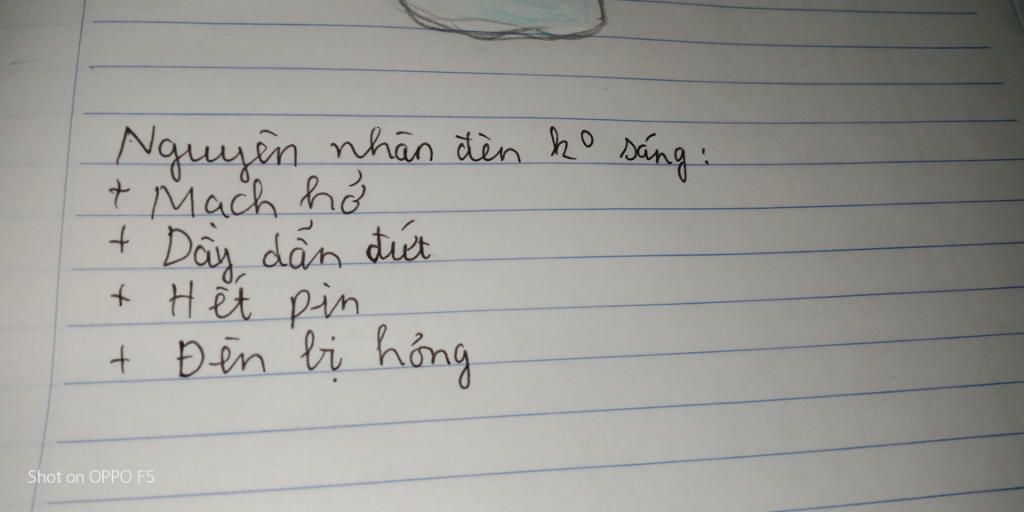 Nguyên nhân đèn k° sáng:
+ Mạch hở
+ Dây dẫn đứt
+ Hết pin
+ Đèn bị hỏng
Shot on OPPO F5